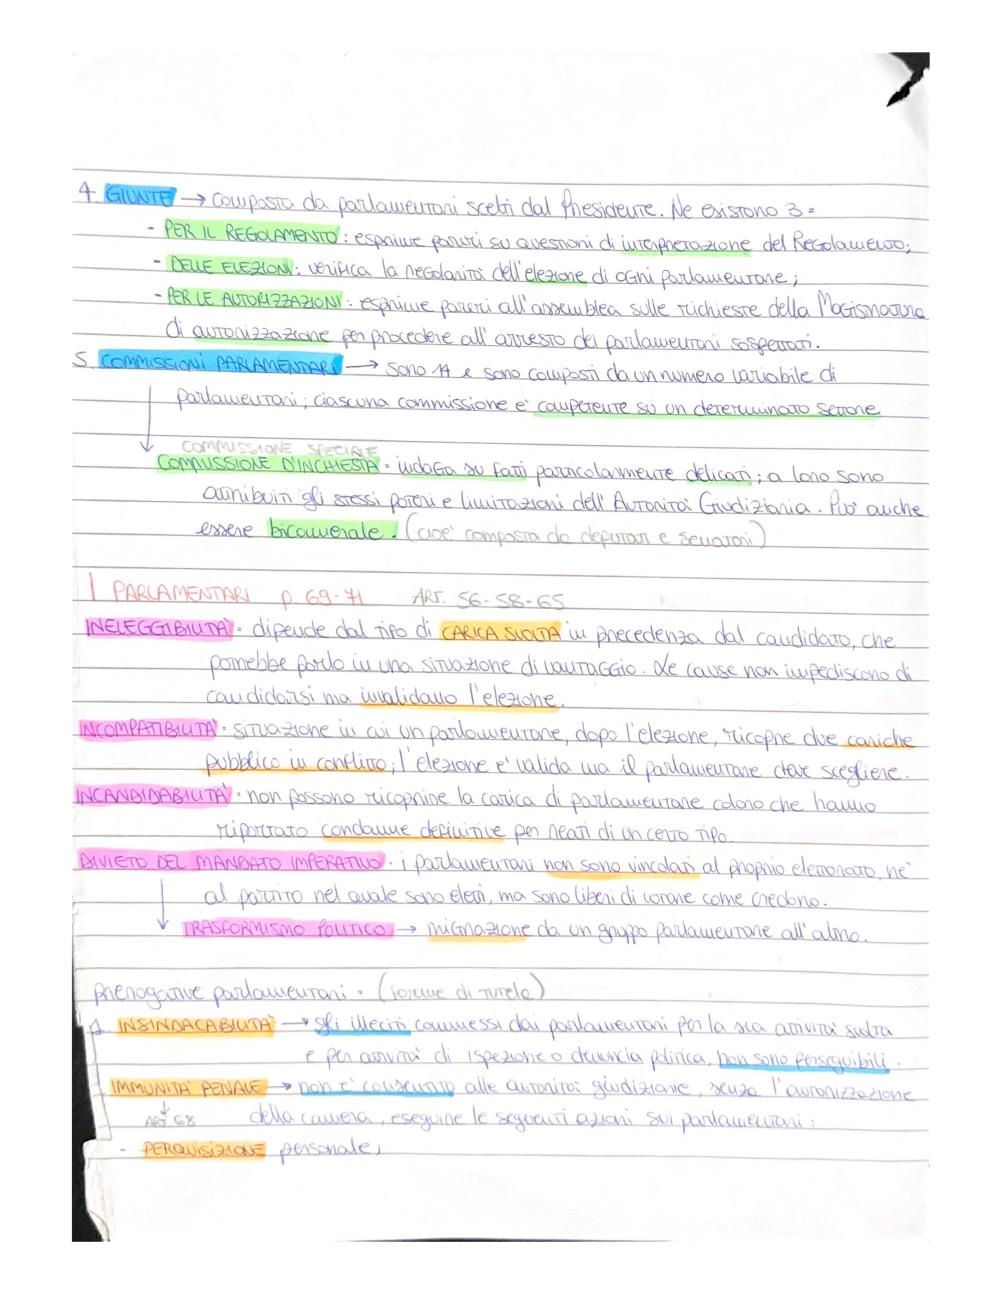 4. GIUNTE → composta da parlamentari scelti dal Presidente. Ne esistono 3:
- PER IL REGOLAMENTO: esprime pareri su questioni di interpretazione del Regolamento;
- DELLE ELEZIONI: verifica la regolarità dell'elezione di ogni parlamentare;
- PER LE AUTORIZZAZIONI: esprime pareri all'assemblea sulle richieste della Magistratura
di autorizzazione per procedere all'arresto dei parlamentari sospettati.
5. COMMISSIONI PARLAMENTARI → sono 14 e sono composti da un numero variabile di
parlamentari; ciascuna commissione è competente su un determinato settore
COMMISSIONE SPECIALE
COMMISSIONE D'INCHIESTA: indaga su fatti particolarmente delicati; a loro sono
attribuiti gli stessi poteri e limitazioni dell'Autorità Giudiziaria. Può anche
essere bicamerale. (cioè composta da deputati e senatori)
I PARLAMENTARI p. 69-71 ART. 56-58-65
INELEGGIBILITÀ: dipende dal tipo di CARICA SVOLTA in precedenza dal candidato, che
potrebbe porlo in una situazione di vantaggio. Le cause non impediscono di
candidarsi ma invalidano l'elezione.
INCOMPATIBILITÀ: situazione in cui un parlamentare, dopo l'elezione, ricopre due cariche
pubblico in conflitto; l'elezione è valida ma il parlamentare deve scegliere.
INCANDIDABILITÀ: non possono ricoprire la carica di parlamentare coloro che hanno
riportato condanne definitive per reati di un certo tipo.
DIVIETO DEL MANDATO IMPERATIVO: i parlamentari non sono vincolati al proprio elettorato, né
al partito nel quale sono eletti, ma sono liberi di votare come credono.
TRASFORMISMO POLITICO → migrazione da un gruppo parlamentare all'altro.
prerogative parlamentari: (forme di tutela)
INSINDACABILITÀ → gli illeciti commessi dai parlamentari per la sua attività svolta
e per attività di ispezione o denuncia politica, non sono perseguibili.
IMMUNITÀ PENALE → non è consentito alle autorità giudiziarie, senza l'autorizzazione
ART 68 della camera, eseguire le seguenti azioni sui parlamentari:
- PERQUISIZIONE personale;